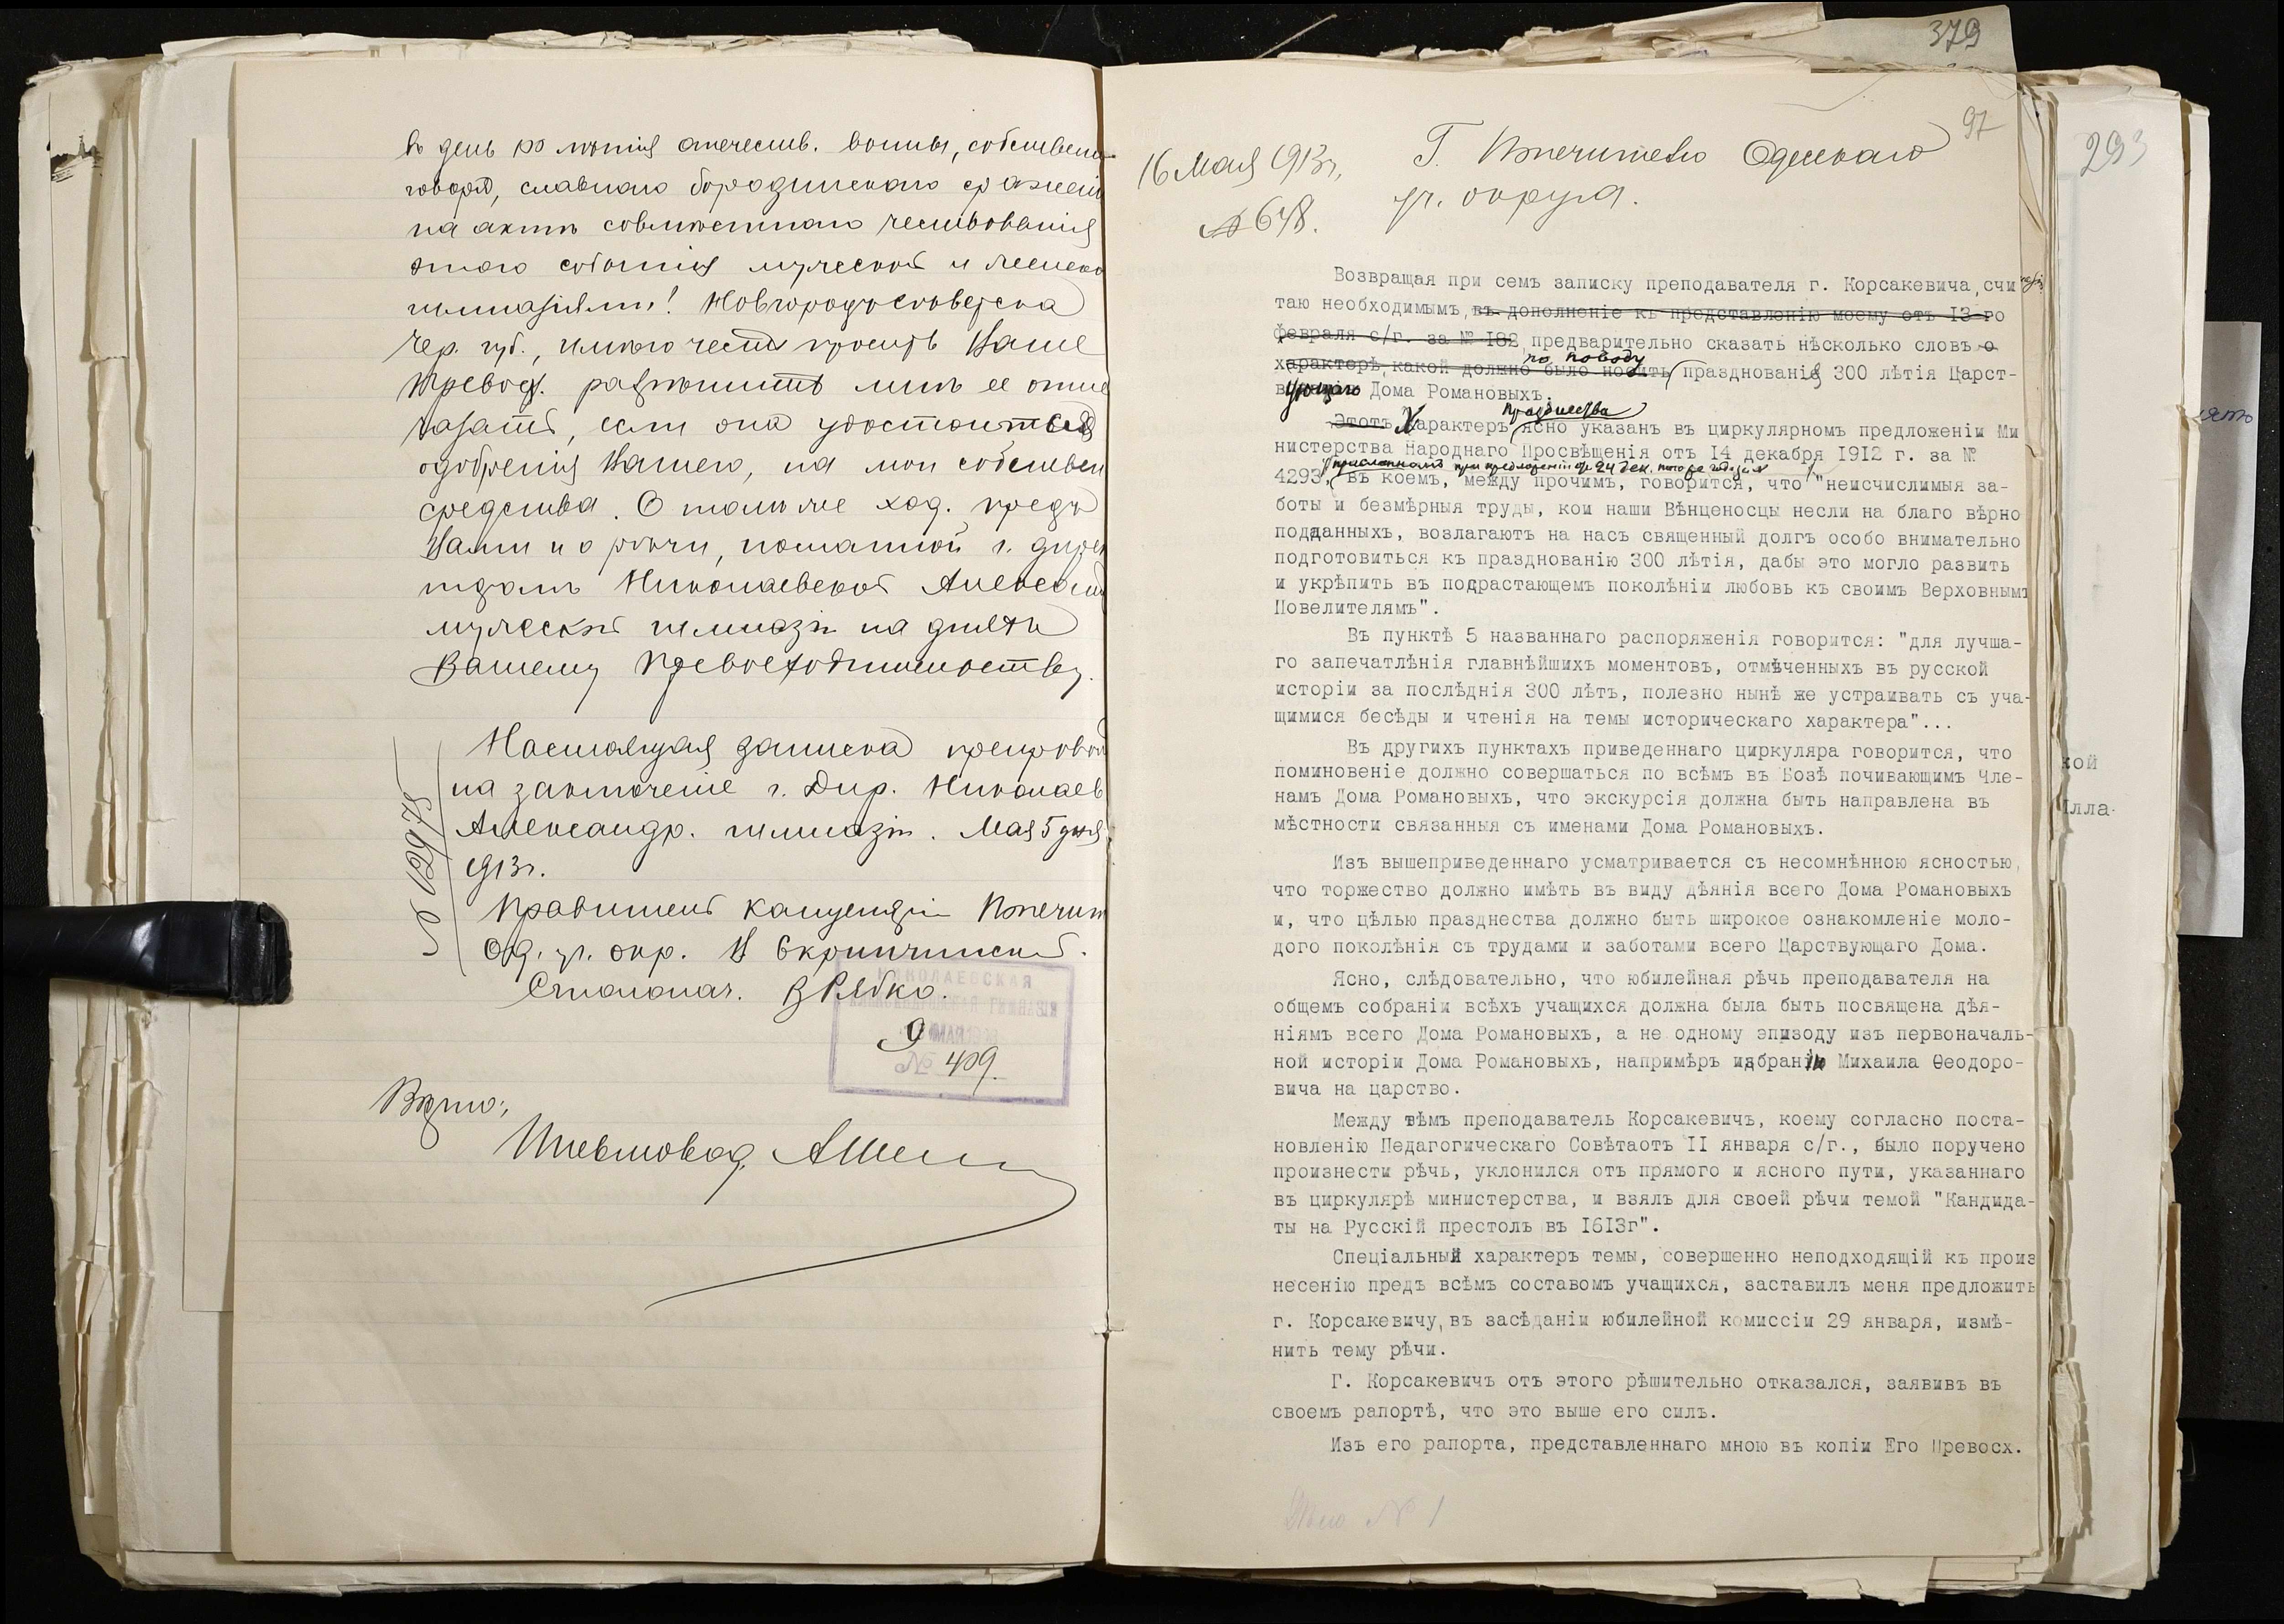 въ день 100 лѣтія отечеств. войны, собственно
говоря, славнаго бородинскаго сраженія
на актѣ совмѣстнаго чествованія
этого событія мужской и женской
гимназіями! Новгородъсѣверска
Чер. губ., имѣю честь просить Ваше
Превосх. разрѣшить мнѣ ее отпе
чатать, если она удостоится
одобренія Вашего, на мои собствен
средства. О томъ же ход. предъ
Вами и о рѣчи, поданной г. дирек
торомъ Николаевской Александ
мужской гимназіи на имя
Вашему Превосходительству.
Настоящая записка препровож
на заключеніе г. Дир. Николаев
Александр. гимназіи. Мая 5 дня
1913г.
№ 12978
Правитель канцеляріи Попечит
Од. уч. окр.
Столонач. В Рябко.
НИКОЛАЕВСКАЯ
АЛЕКСАНДРОВСКАЯ ГИМНАЗІЯ
9 МАЯ 1913
№ 409.
Вѣрно:
Письмовод. АШе
379
97
293
16 Мая 1913г.
Г. Попечителю Одесскаго
№ 648.
уч. округа.
Возвращая при семъ записку преподавателя г. Корсакевича, счи
таю необходимымъ, въ дополненіе къ представленію моему отъ 13-го
февраля с/г. за № 182 предварительно сказать нѣсколько словъ о
по поводу
характерѣ, какой должно было носить празднованія 300 лѣтія Царст-
вующаго Дома Романовыхъ.
празднества
Этотъ Характеръ ясно указанъ въ циркулярномъ предложеніи Ми
нистерства Народнаго Просвѣщенія отъ 14 декабря 1912 г. за №
присланномъ при предложеніи отъ 24 дек. того же года за №
4293, въ коемъ, между прочимъ, говорится, что "неисчислимыя за-
боты и безмѣрныя труды, кои наши Вѣнценосцы несли на благо вѣрно
подданныхъ, возлагаютъ на насъ священный долгъ особо внимательно
подготовиться къ празднованію 300 лѣтія, дабы это могло развить
и укрѣпить въ подрастающемъ поколѣніи любовь къ своимъ Верховнымъ
Повелителямъ".
Въ пунктѣ 5 названнаго распоряженія говорится: "для лучша-
го запечатлѣнія главнѣйшихъ моментовъ, отмѣченныхъ въ русской
исторіи за послѣднія 300 лѣтъ, полезно нынѣ же устраивать съ уча-
щимися бесѣды и чтенія на темы историческаго характера"...
Въ другихъ пунктахъ приведеннаго циркуляра говорится, что
поминовеніе должно совершаться по всѣмъ въ Бозѣ почивающимъ Чле-
намъ Дома Романовыхъ, что экскурсія должна быть направлена въ
мѣстности связанныя съ именами Дома Романовыхъ.
Изъ вышеприведеннаго усматривается съ несомнѣнною ясностью,
что торжество должно имѣть въ виду дѣянія всего Дома Романовыхъ
и, что цѣлью празднества должно быть широкое ознакомленіе моло-
дого поколѣнія съ трудами и заботами всего Царствующаго Дома.
Ясно, слѣдовательно, что юбилейная рѣчь преподавателя на
общемъ собраніи всѣхъ учащихся должна была быть посвящена дѣя-
ніямъ всего Дома Романовыхъ, а не одному эпизоду изъ первоначаль-
ной исторіи Дома Романовыхъ, напримѣръ избранію Михаила Ѳеодоро-
вича на царство.
Между тѣмъ преподаватель Корсакевичъ, коему согласно поста-
новленію Педагогическаго Совѣтаотъ II января с/г., было поручено
произнести рѣчь, уклонился отъ прямого и ясного пути, указаннаго
въ циркулярѣ министерства, и взялъ для своей рѣчи темой "Кандида-
ты на Русскій престолъ въ I6I3г".
Спеціальный характеръ темы, совершенно неподходящій къ произ
несенію предъ всѣмъ составомъ учащихся, заставилъ меня предложить
г. Корсакевичу, въ засѣданіи юбилейной комиссіи 29 января, измѣ-
нить тему рѣчи.
Г. Корсакевичъ отъ этого рѣшительно отказался, заявивъ въ
своемъ рапортѣ, что это выше его силъ.
Изъ его рапорта, представленнаго мною въ копіи Его Превосх.
Дѣло № 1
кой
лла-